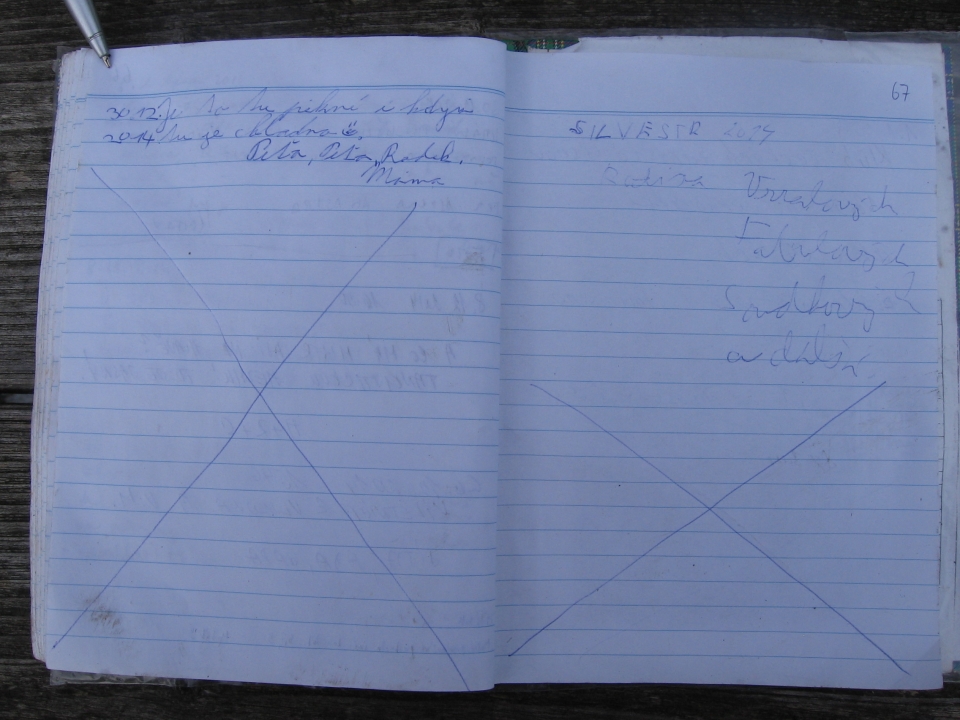 30.12. Je to tu pěkné i když
2014 tu je chladno
Péťa, Péťa, Radek,
Máma
67
SILVESTR 2014
rodina
a další